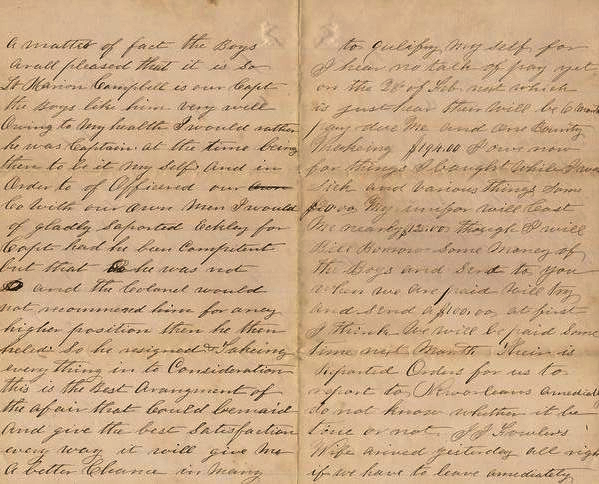 A matter of fact the Boys
are all pleased that it is so
Lt Marion Campbell is our Capt
the Boys like him very well
Owing to My health I would rather
he was Captain at the time being
then to be it My self And in
Order to of Officered our
Co With our own Men I would
of gladly Saported Eckley for
Capt had he ben Competent
but that he was not
and the Colonel would
not recommend him for any
higher position then he then
held. So he resigned & Takeing
every thing in to Consideration
this is the Best Arangment of
the afair that Could be maid
And give the best Satisfaction
every way it will give Me
A better Chance in Many
to qulify My self for
I hear no talk of pay yet
on the 28 of Feb next which
is just hear ther Will be 6 Months
pay due Me and One Bounty
Makeing $194.00 I owe now
for things I bought While I was
Sick and Various things Some
My unifor will Cost
Me nearly $12.00 though I will
Borrow Some Money of
the Boys and Send to you
When we are paid Will try
and Send $100.00 at first
I think We will be paid Some
time next Month. Their is
Reported Orders for us to
report to Neworleans amediatly
do not know whether it be
true or not. J J Fowlers
Wife arived yesterday all right
if we have to leave amediately